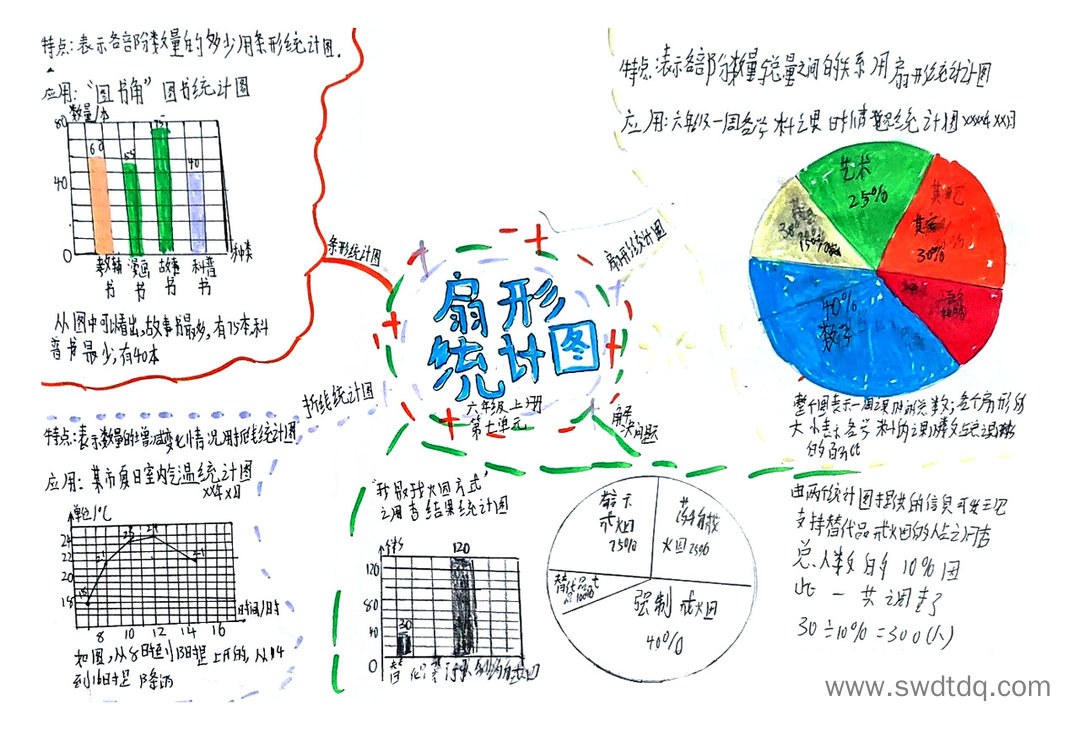 特点:表示各部分数量的多少用条形统计图.
应用:“图书角”图书统计图
数量/本
80
75
60
55
40
40
0
种类
教辅书
漫画书
故事书
科普书
从图中可以看出,故事书最多,有75本,科
普书最少,有40本
条形统计图
特点:表示各部分数量与总量之间的关系用扇形统计图
应用:六年级一周各学科上课时情况统计图xx年xx月
艺术
25%
其他
30%
15%
40%
数学
整个圆表示一周上课时的总数;各个扇形的
大小表示各学科的课时数占总课时数
的百分比
扇形统计图
扇形
统计图
六年级上册
第七单元
折线统计图
解决问题
特点:表示数量的增减变化情况用折线统计图.
应用:某市夏日室内气温统计图
xx年x月
单位/℃
24
22
20
18
8 10 12 14 16
时间/时
如图,从8时起到13时是上升的,从14
到16时是下降的
“我最戒火因方式”
之调查结果统计图
人数
120
120
80
40
30
0
警示
戒烟
25%
药物戒
火因25%
替代品
10%
强制戒火因
40%
由两个统计图提供的信息可发现
支持替代品戒火因的人占调查
总人数的10%因
此一共调查了
30÷10%=300(人)
www.swdtdq.com